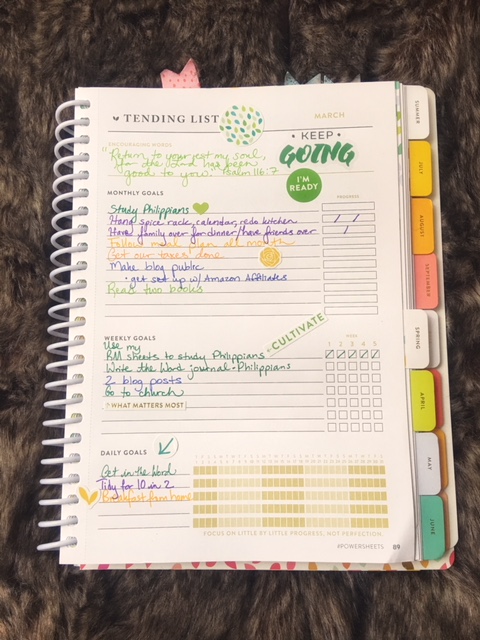 TENDING LIST
MARCH
• KEEP •
GOING
ENCOURAGING WORDS
"Return to your rest my soul,
for the Lord has been
good to you. Psalm 116:7
I'M
READY
MONTHLY GOALS
PROGRESS
Study Philippians
Hang spice rack, calendar, redo kitchen
Have family over for dinner/have friends over
Follow meal plan all month
Get our taxes done
Make blog public
• get set up w/ Amazon Affiliates
Read two books
• CULTIVATE
WEEKLY GOALS
WEEK
1 2 3 4 5
Use my
RM sheets to study Philippians
Write the Word journal - Philippians
2 blog posts
Go to church
WHAT MATTERS MOST
DAILY GOALS
Get in the Word
Tidy for 10 in 2
Breakfast from home
FOCUS ON LITTLE BY LITTLE PROGRESS, NOT PERFECTION.
#POWERSHEETS 89
SUMMER
JULY
AUGUST
SEPTEMBER
SPRING
APRIL
MAY
JUNE